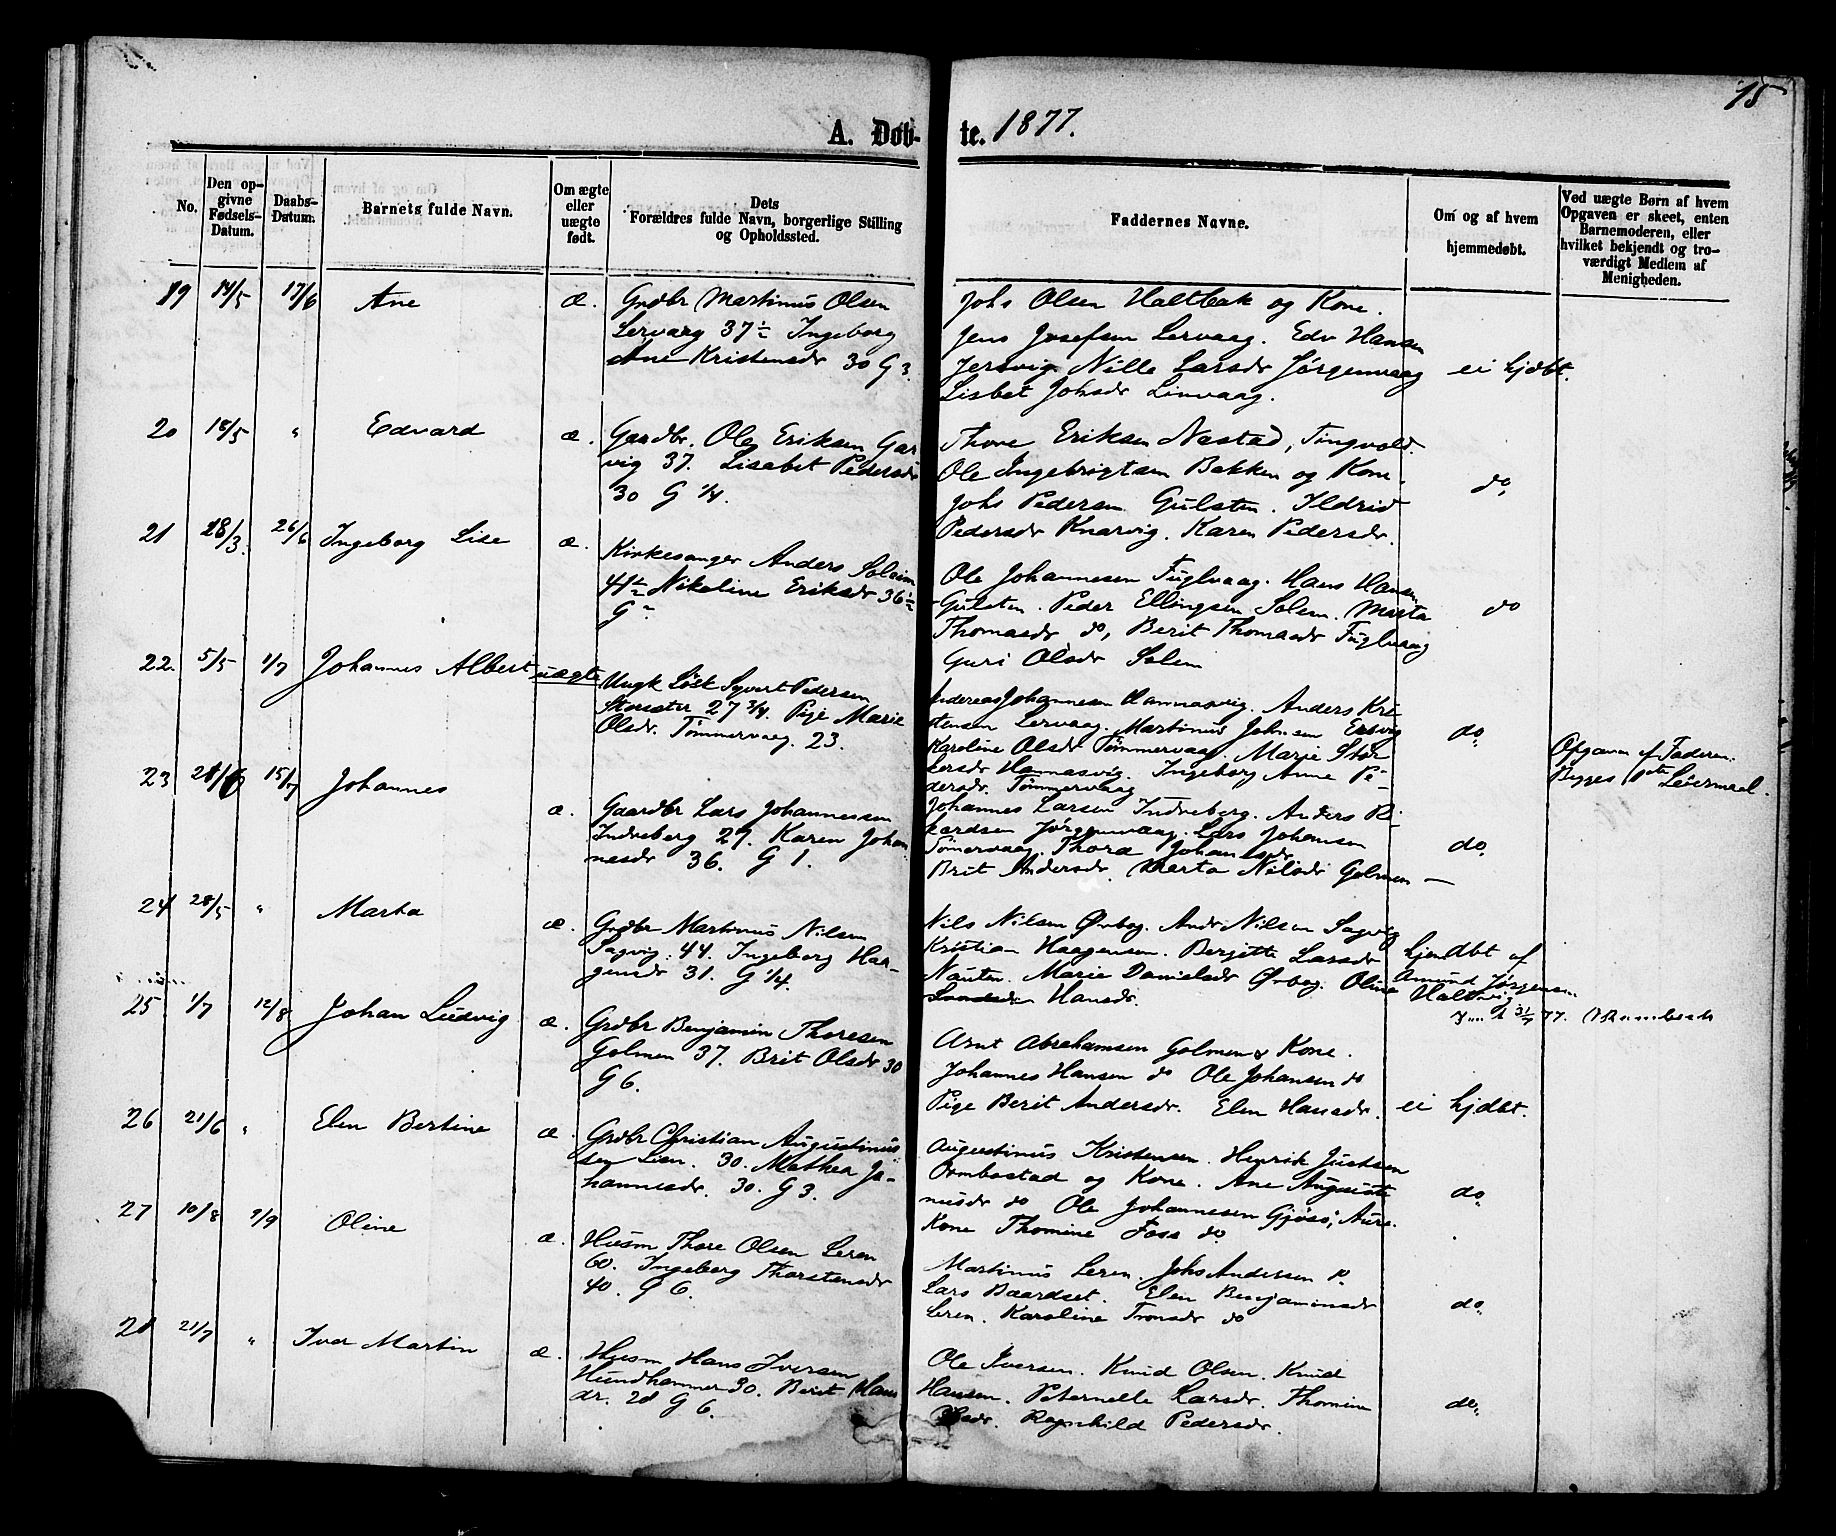 15
A. Døb- te. 1877.
No.
Den op-
givne
Fødsels-
Datum.
Daabs-
Datum.
Barnets fulde Navn.
Om ægte
eller
uægte
født.
Dets
Forældres fulde Navn, borgerlige Stilling
og Opholdssted.
Faddernes Navne.
Om og af hvem
hjemmedøbt.
Ved uægte Børn af hvem
Opgaven er skeet, enten
Barnemoderen, eller
hvilket bekjendt og tro-
værdigt Medlem af
Menigheden.
19 14/5 17/6 Ane æ.
Grdbr Martinus Olsen
Lervaag 37½ Ingeborg
Ane Kristensdr 30 G 3.
Johs Olsen Haltbak og Kone.
Jens Josefsen Lervaag. Edv Hansen
Jersvig Nille Larsdr Jørgenvaag
Lisbet Johsdr Linvaag.
ei hjdbt.
20 18/5 " Edvard æ.
Gardbr. Ole Eriksen Gar
vig 37. Lisabet Pedersdr
30 G 1/4.
Thore Eriksen Nastad, Tingvold.
Ole Ingebrigtsen Bakken og Kone.
Johs Pedersen Gulsten. Ildrid
Pedersdr Knarvig. Karen Pedersdr.
do,
21 28/3. 26/6 Ingeborg Lise æ.
Kirkesanger Anders Solem
41½ Nikoline Eriksdr 36½
G "
Ole Johannesen Fuglvaag. Hans Hansen
Gulsten. Peder Ellingsen Solem. Marta
Thomasdr do, Berit Thomasdr Fuglvaag
Guri Olsdr Solem
do
22. 5/5 1/7 Johannes Albert uægte
Ungk Løsk Syvert Pedersen
27 3/4. Pige Marie
Olsdr. Tømmervaag. 23.
Andreas Johannesen Hannasvig. Anders Kri
stensen Lervaag. Martinus Johnsen
Karoline Olsdr Tømmervaag. Marie Stor
kersdr Hannasvig. Ingeborg Anne Pe-
dersdr. Tømmervaag
do.
Opgaven af Faderen.
Begges 1ste Leiermaal.
23 21/6 15/7 Johannes æ.
Gaardbr Lars Johannessen
Indreberg 27. Karen Johan
nesdr 36. G 1.
Johannes Larsen Indreberg. Anders Ri-
kardsen Jørgenvaag. Lars Johansen
Tømervaag. Thora Johansdr
Brit Andersdr. Marta Nilsdr Golmen —
do,
24 28/5 " Marta æ.
Grdbr Martinus Nilsen
Sagvig. 44. Ingeborg Haa-
gensdr 31. G 1/4.
Nils Nilsen Ørbog. Andr Nilsen Sagvig
Kristian Haagensen. Bergitte Larsdr
Nauten. Marie Danielsdr Ørbog. Oline
Hansdr.
hjemdbt af
Amund Jørgensen
Haltvig
25 1/7 12/8 Johan Ludvig æ.
Grdbr Benjamin Thoresen
Golmen 37. Brit Olsdr 30
G 6.
Arnt Abrahamsen Golmen & Kone.
Johannes Hansen do Ole Johansen do
Pige Berit Andersdr. Elen Hansdr.
ei hjdbt.
26 21/6 " Elen Bertine æ.
Grdbr Christian Augustinus
sen Lien. 30. Mathea Jo-
hannesdr. 30. G 3.
Augustinus Kristensen. Henrik Justsen
Ormbostad og Kone. Ane Augusti
nusdr do Ole Johannesen Gjøsö, Aure.
Kone Thomine Foss do
do
27 10/8 2/9 Oline æ.
Husm Thore Olsen Leren
60. Ingeborg Thorstensdr
40. G 6.
Martinus Leren. Johs Andersen do.
Lars Baardset. Elen Benjaminsdr
Leren. Karoline Tronsdr do
do.
28 21/7 " Iver Martin æ.
Husm Hans Iversen
Hundhammer 30. Berit Hans
dr. 28 G 6.
Ole Iversen. Knud Olsen. Knud
Hansen. Peternelle Larsdr. Thomine
Olsdr. Ragnhild Pedersdr.
do.